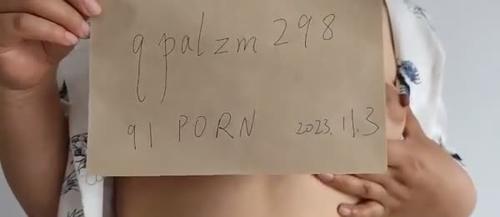 qpalzm298
91 PORN 2023.11.3